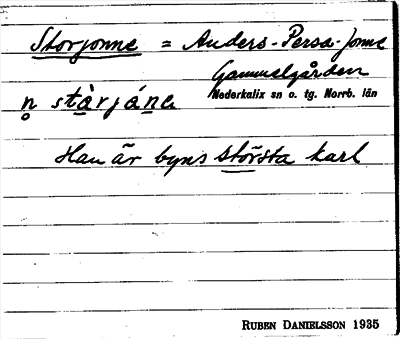 Storjonne = Anders-Persa-Jonne
Gammelgården
Nederkalix sn o. tg. Norrb. län
n̥ stàrjána
Han är byns största karl
RUBEN DANIELSSON 1935